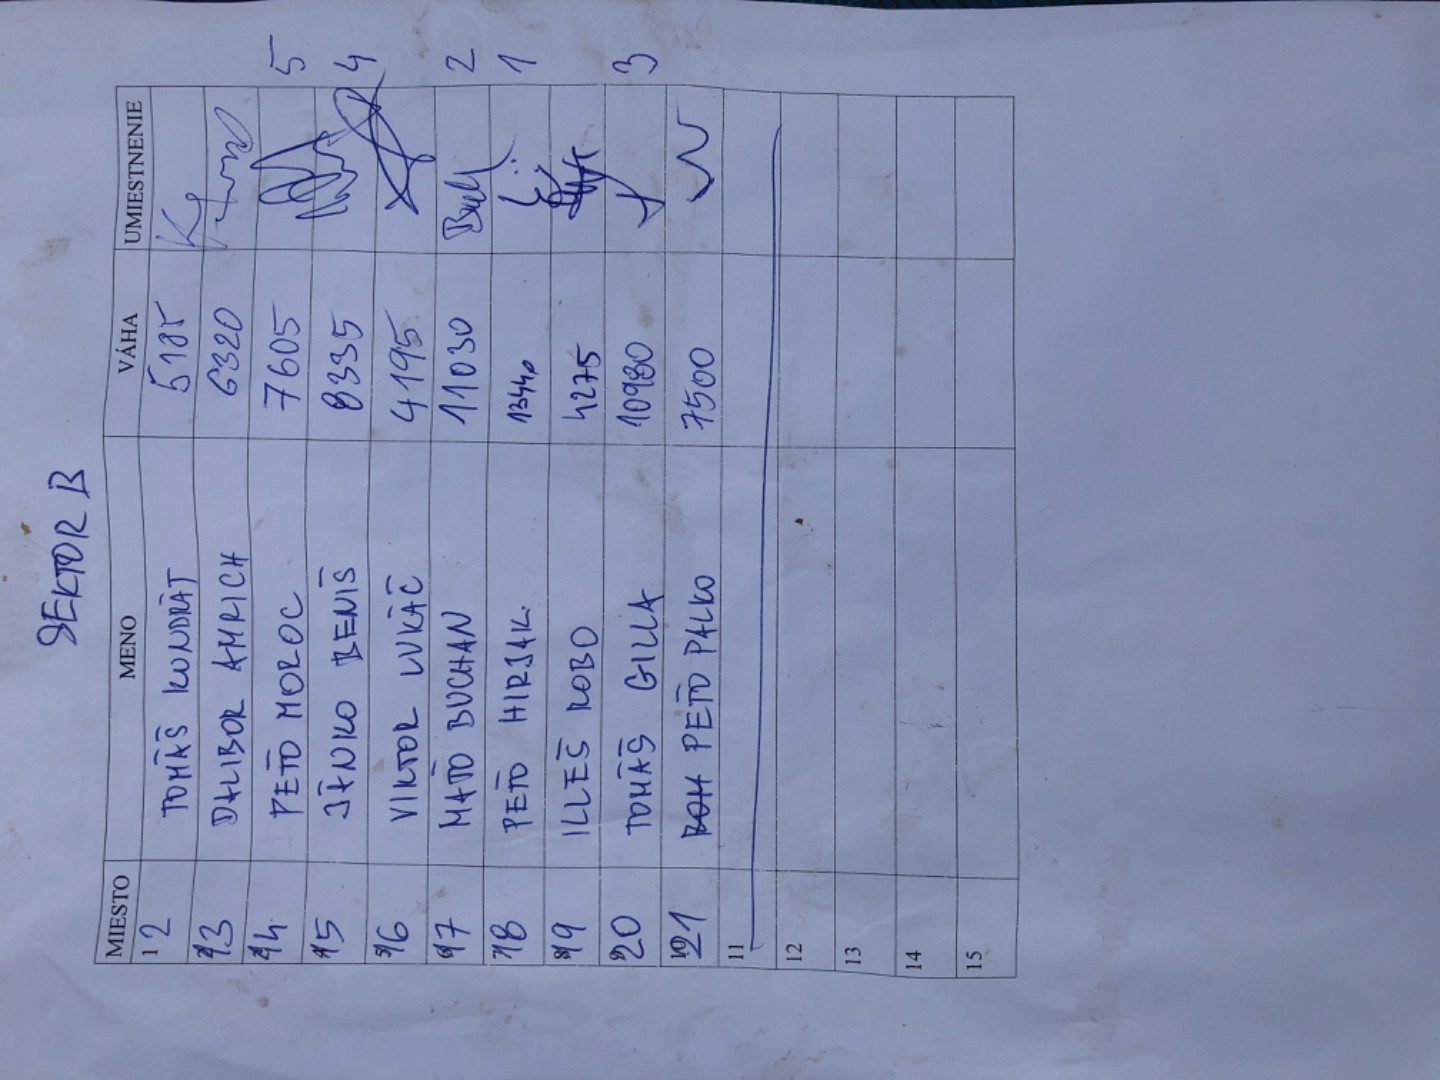 SEKTOR B
MIESTO MENO VÁHA UMIESTNENIE
12 TOMÁŠ KUNDRÁT 5185
13 DALIBOR AMRICH 6320
14 PEŤO MOROC 7605 5
15 JÁNKO BENIŠ 8335 4
16 VIKTOR LUKÁČ 4195
17 MAŤO BUCHAN 11030 2
18 PEŤO HIRJAK. 13440 1
19 ILLÉŠ ROBO 4275
20 TOMÁŠ GILLA 10980 3
21 PEŤO PALKO 7500
11
12
13
14
15